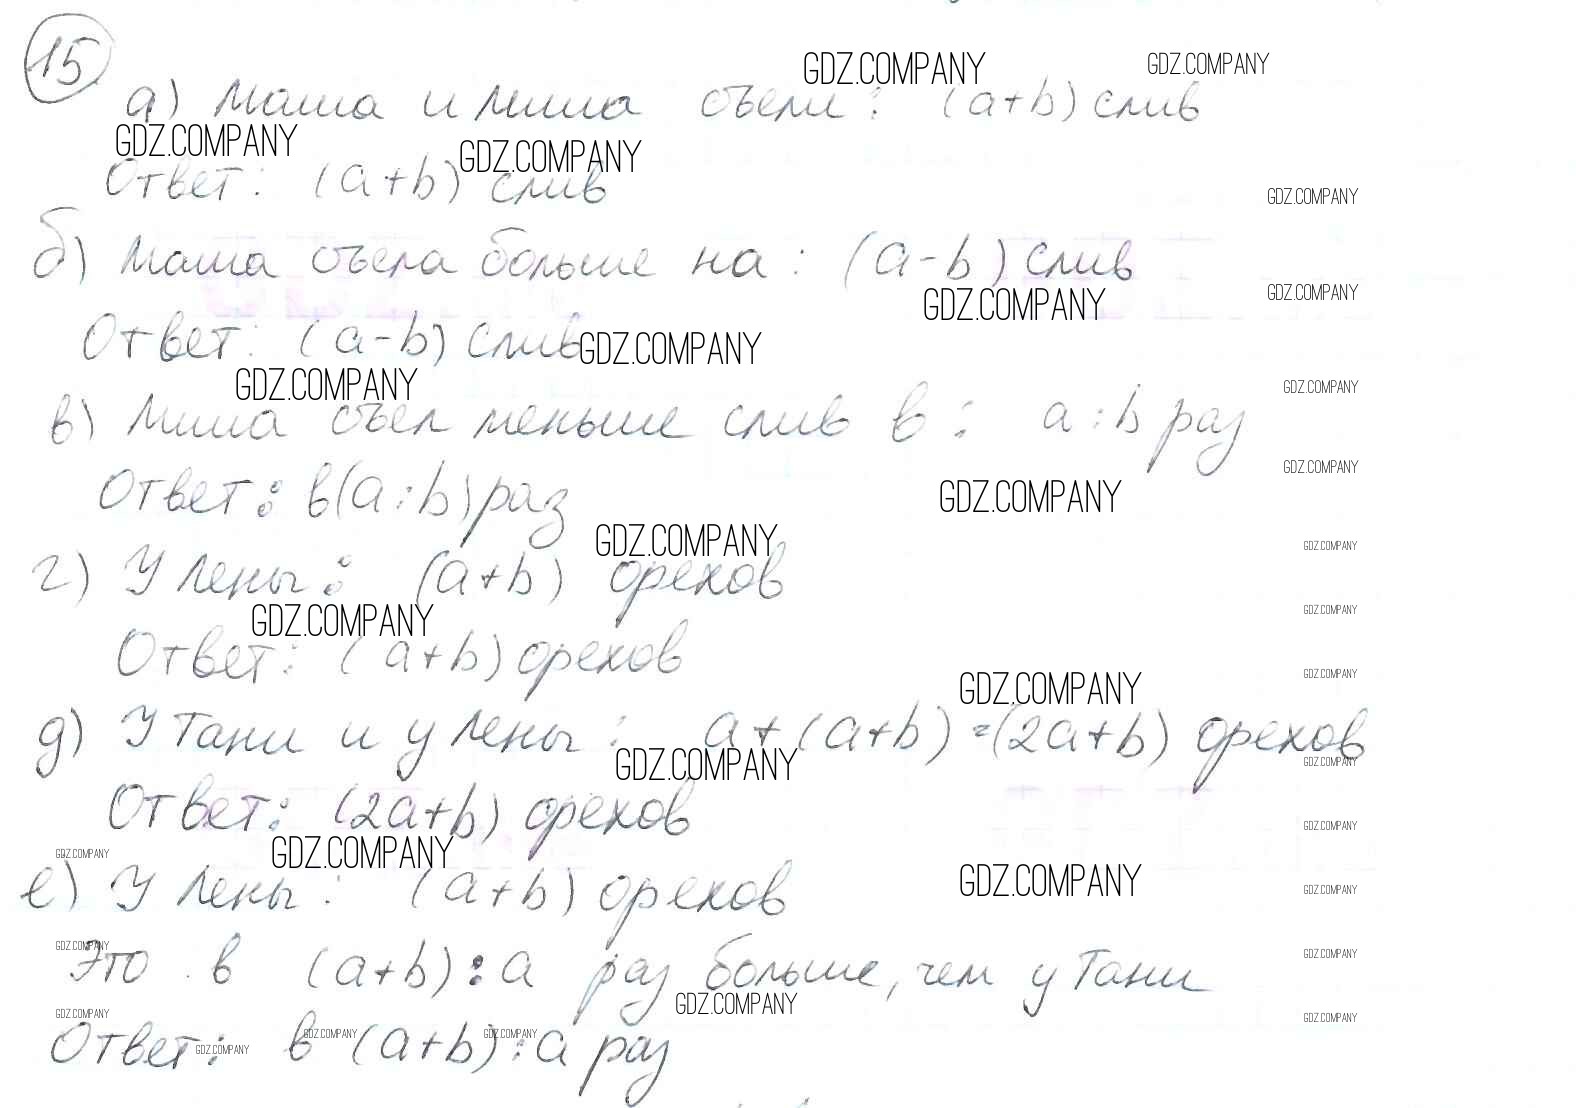 15
GDZ.COMPANY GDZ.COMPANY
а) Маша и Миша съели: (a+b) слив
GDZ.COMPANY GDZ.COMPANY
Ответ: (a+b) слив
GDZ.COMPANY
б) Маша съела больше на: (a-b) слив
GDZ.COMPANY GDZ.COMPANY
Ответ: (a-b) слив
GDZ.COMPANY
GDZ.COMPANY GDZ.COMPANY
в) Миша съел меньше слив в: a:b раз
GDZ.COMPANY
Ответ: в (a:b) раз
GDZ.COMPANY
GDZ.COMPANY GDZ.COMPANY
г) У Лены: (a+b) орехов
GDZ.COMPANY GDZ.COMPANY
Ответ: (a+b) орехов
GDZ.COMPANY GDZ.COMPANY
д) У Тани и у Лены: a+(a+b)=(2a+b) орехов
GDZ.COMPANY GDZ.COMPANY
Ответ: (2a+b) орехов
GDZ.COMPANY
GDZ.COMPANY GDZ.COMPANY
е) У Лены: (a+b) орехов
GDZ.COMPANY GDZ.COMPANY
GDZ.COMPANY GDZ.COMPANY
Это в (a+b):a раз больше, чем у Тани
GDZ.COMPANY GDZ.COMPANY GDZ.COMPANY
GDZ.COMPANY GDZ.COMPANY
Ответ: в (a+b):a раз
GDZ.COMPANY